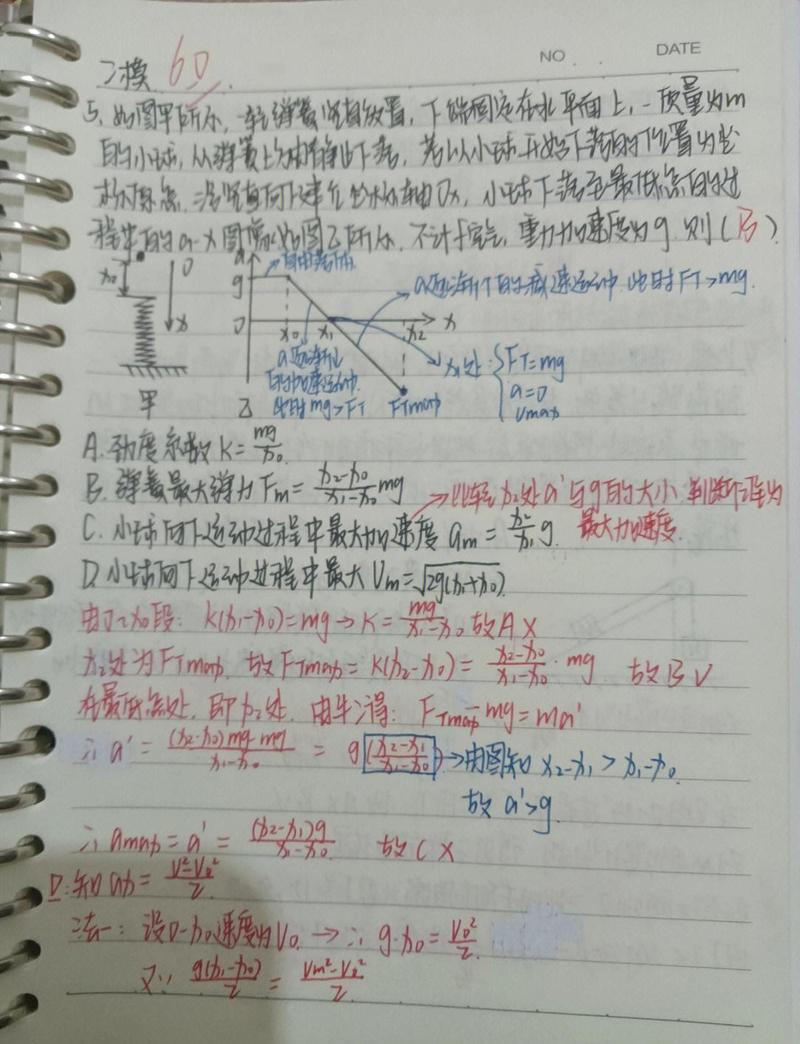 NO . . DATE
二模 60
5. 如图甲所示, 一轻弹簧竖直放置, 下端固定在水平面上, 一质量为m
的小球, 从弹簧上方由静止下落, 若以小球开始下落的位置为坐
标原点, 沿竖直向下建立坐标轴Ox, 小球下落至最低点的过
程中的a-x图像如图乙所示, 不计空气, 重力加速度为g. 则(B)
x₀ O x 甲
a g O x₀ x₁ x₂ x 乙
自由落体
a逐渐↑的减速运动. 此时FT>mg.
a逐渐↓的加速运动. 此时mg>FT
FTmax
x₁处: { FT=mg a=0 Vmax
A. 劲度系数 K=mg/x₀.
B. 弹簧最大弹力 Fm=(x₂-x₀)/(x₁-x₀)mg
比较x₂处a'与g的大小, 判断谁为最大加速度.
C. 小球向下运动过程中最大加速度 am=x₂/x₁g.
D. 小球向下运动过程中最大 Vm=√2g(x₁+x₀)
K(x₁-x₀)=mg→K=mg/(x₁-x₀) 故A×
x₂处为FTmax, 故FTmax=K(x₂-x₀)=(x₂-x₀)/(x₁-x₀)·mg 故B√
在最低点处, 即x₂处, 由牛二得: FTmax-mg=ma'
∴a'=(x₂-x₀)mg-mg/x₁-x₀=g(x₂-x₁/x₁-x₀)→由图知 x₂-x₁>x₁-x₀.
故 a'>g.
∴amax=a'=(x₂-x₁)g/(x₁-x₀) 故C×
D:知ax=(V²-V₀²)/2
法一: 设0-x₀速度为V₀. →∴g·x₀=V₀²/2.
又∵g(x₁-x₀)/2=(Vm²-V₀²)/2